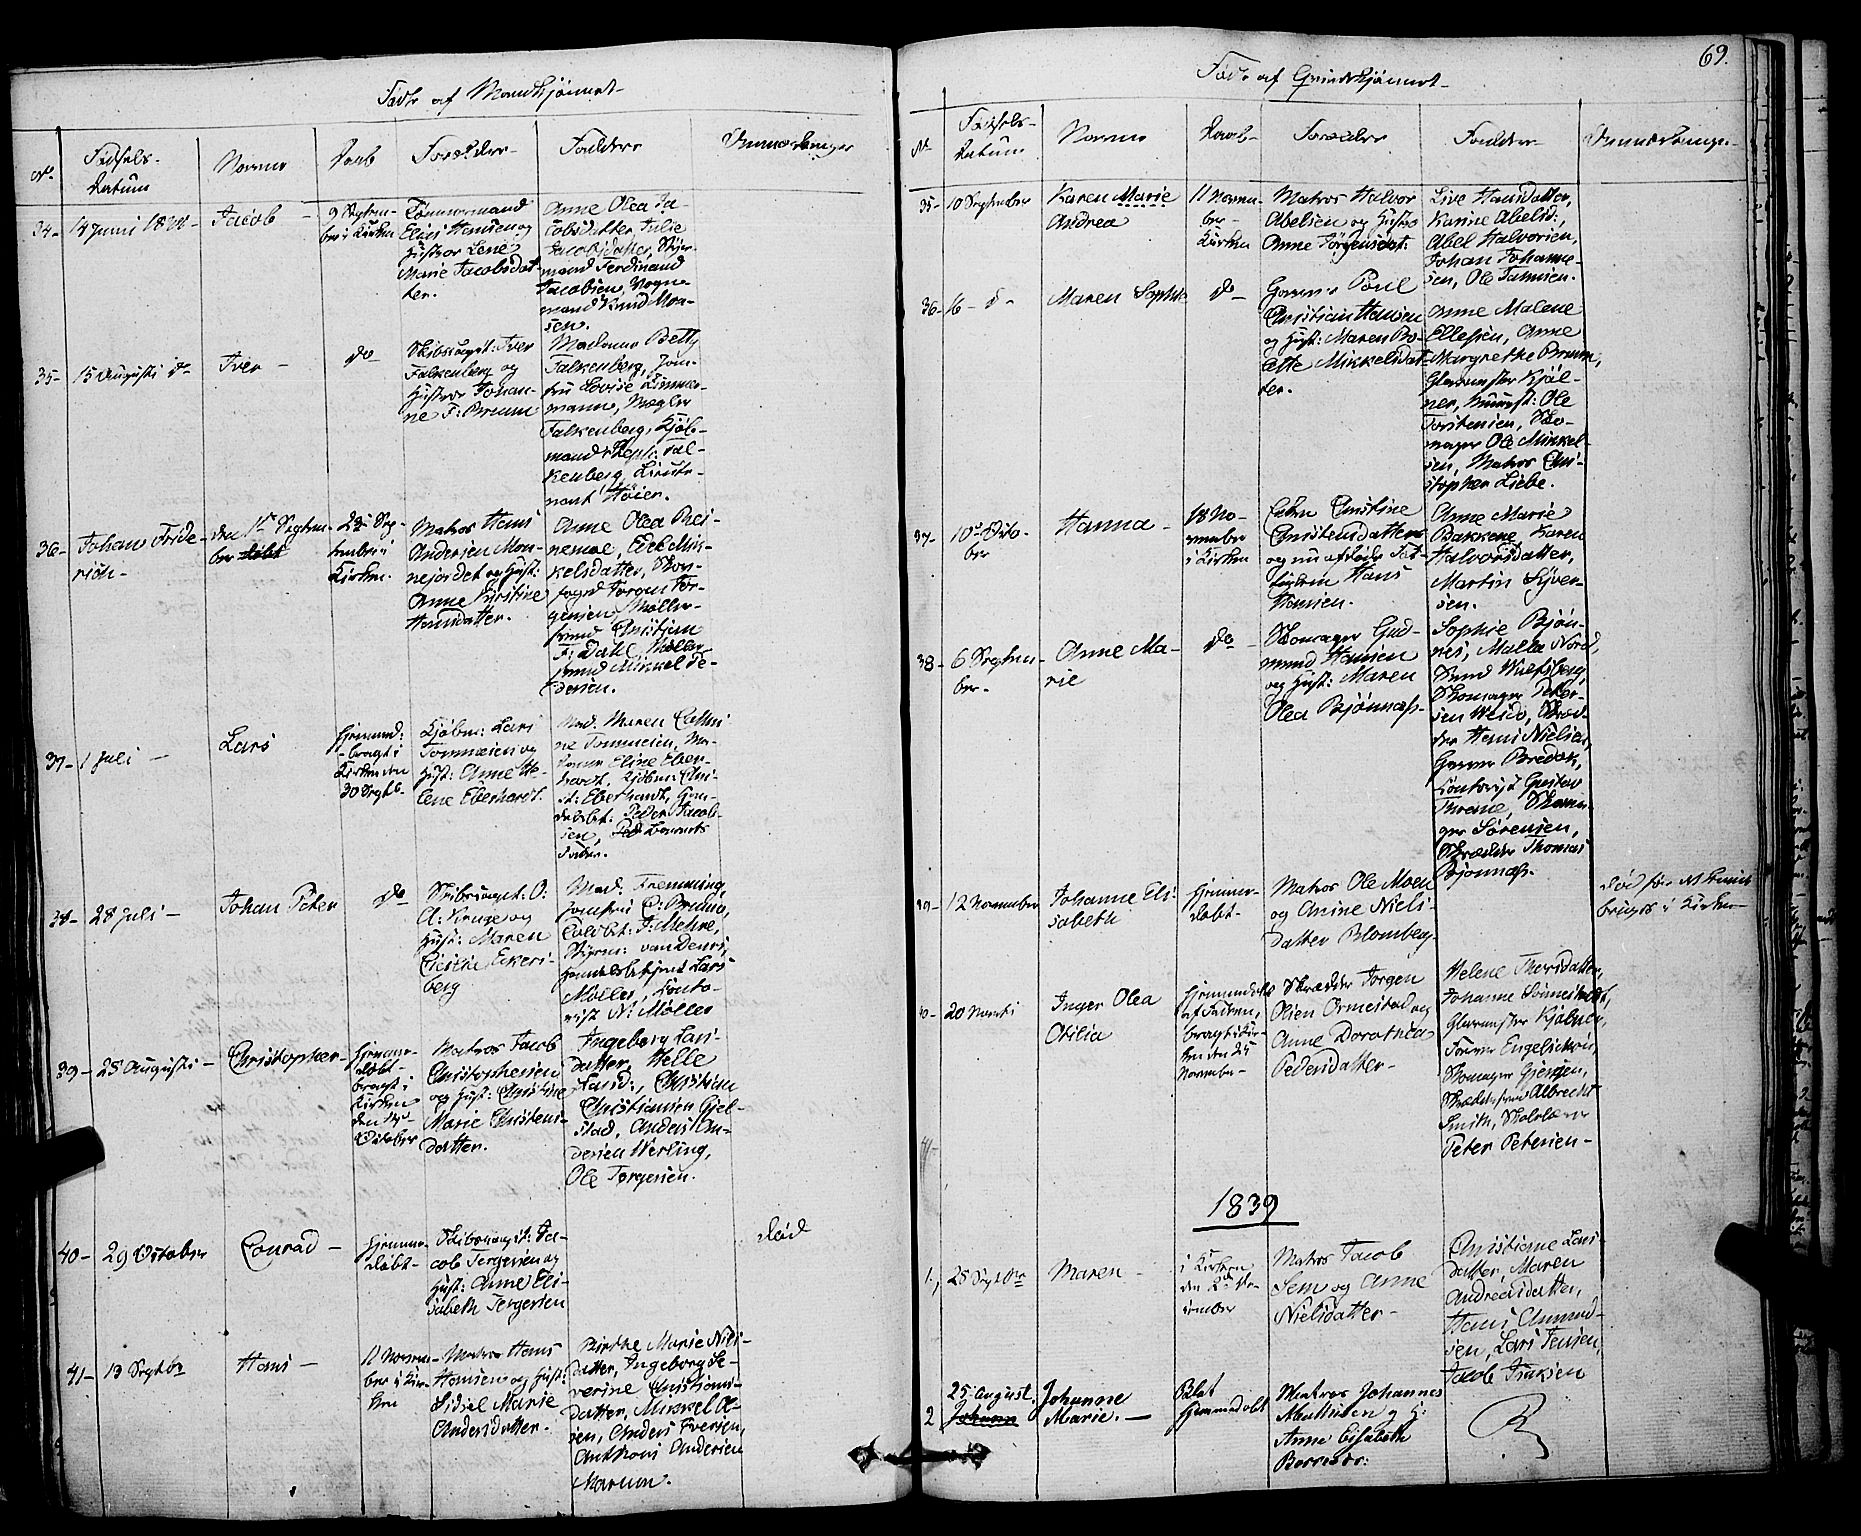 Fødte af Mandkjønnet
No.
Fødsels-
datum
Navne
Daab
Forældre
Faddere
Anmærkninger
34-
14 Juni 1838-
Jacob
9 Septem-
ber i Kirken
Tømmermand
Elias Hansen og
Hustroe Lene
Marie Jacobsdat-
ter.
Anne Olea Ja-
cobsdatter, Julie
Jacobsdatter, Styr-
mand Ferdinand
Jacobsen, Vogn-
mand Knud Mon-
sen.
35-
15 Augusti do
Iver -
do
Skibscapt: Iver
Falkenberg og
Hustroe Johan-
ne F: Bruun
Madame Betty
Falkenberg, Jom-
fru Lovise Zimmer-
mann, Mægler
Falkenberg, Kjøb-
mand Steph: Fal-
kenberg, Lieute-
nant Høier.
36-
Johan Fride-
rich-
den 1ste Septem-
ber
23de Sep-
tember i
Kirken.
Matros Hans
Andersen Mon-
nejordet og Hust:
Anne Kirstine
Hansdatter.
Anne Olea
Edel Min-
kelsdatter, Skov-
foged Jørgen Jør-
gensen, Møller-
svend Christian
F: Dahl, Møller-
svend Minkel Pe-
dersen.
37-
1 Juli -
Lars
hjemmed:
bragt i
Kirken den
30 Septb.
Kjøbm: Lars
Tommesen og
Hust: Anne He-
lene Eberhardt.
Mad. Maren Cathri-
ne Tommesen, Ma-
dame Eline Eber-
hardt, Kjøbm: Chri-
st: Eberhardt, Han-
delsbet: Peder Jacob-
sen, Barnets
Fader.
38-
28 Juli -
Johan Peter
do
Skibscapt: O.
A: Kruge og
Hust: Maren
Eckers-
berg
Mad: Fremming,
Jomfru C: Bruun,
J: Mehre,
Styrm: van Deurs,
Handelsbetjent Lars
Møller, Conto-
rist N: Møller
39-
25 Augusti -
Christopher-
hjemme-
døbt-
bragt i
Kirken
den 14de
October
Matros Jacob
Christophersen
og Hust: Christine
Marie Christens-
datter.
Ingeborg Lars-
datter, Helle
Larsd:, Christian
Christiansen Gjel-
stad, Anders An-
dersen Werling,
Ole Jørgensen.
40-
29 October
Conrad -
hjemme-
døbt-
Skibscapt: Ja-
cob Jørgensen og
Hust: Anne Eli-
sabeth Jørgensen
død
41-
13 Septbr
Hans -
11 Novem-
ber i Kir-
ken
Matros Hans
Hansen og Hust:
Sidsel Marie
Andersdatter.
Birthe Marie Niels-
datter, Ingeborg Se-
verine Christians-
datter, Minkel O-
sen, Anders Iversen,
Anthoni Andersen
Marum.
69.
Født af Qvindekjønnet
No
Fødsels-
datum
Navne
Daab
Forældre
Faddere
Anmærkninger
35-
10 September
Karen Marie
Andrea
11 Novem-
ber-
Kirken
Matros Halvor
Abelsen og Hustroe
Anne Jørgensdat:
Live Hansdatter,
Karine Abelsd:,
Abel Halvorsen,
Johan Johanne-
sen, Ole Jansen.
36-
16- do-
Maren Sophie
do
Garver Poul
Christian Hansen
og Hust: Maren Bo-
lette Minkelsdat-
ter.
Anne Malene
Ellefsen, Anne
Margrethe Bruun,
Glarmester Kjøl-
ner, Muurst: Ole
Torstensen, Sko-
mager Ole Minkel-
sen, Matros Chri-
stopher Liebe.
37-
10de Octo-
ber
Hanna -
18 No-
vember
i Kirken
Enken Christine
Christensdatter
og nu afdøde
Hans
Hansen.
Anne Marie
Bakkene Karen
Halvorsdatter,
Martin Syver-
sen.
38-
6 Septem-
ber-
Anne Ma-
rie
do
Skomager Gud-
mund Hansen
og Hust: Maren
Olea Bjønnæs-
Sophie Bjøn-
nes, Malla Nord,
Svend Wulfsberg,
Skomager Peder-
sen Weidø, Skræd-
der Hans Nielsen,
Garver Bredek,
Contorist Gustav
Thrane, Skoma-
ger Sørensen,
Skrædder Thomas
Bjønnæs.
39-
12 November
Johanne Eli-
sabeth
hjemme-
døbt-
Matros Ole Moen
og Anine Niels-
datter Blomberg.
død før at kunne
bringes i Kirken
40-
20 Novemb
Inger Olea
Otilia
hjemmedøbt
af Faderen,
bragt i Kir-
ken den 25
November-
Skrædder Jørgen
Olsen Ormestad og
Anne Dorothea
Pedersdatter-
Helene Thorsdatter,
Johanne
Glarmester Kjølner,
Farver Engelschøn,
Skomager Gjersøen,
Skrædersvend Albrecht
Smith, Skolelærer
Peter Petersen-
41-
1839
1.
25 Septbr
Maren -
i Kirken
den 2den De-
cember
Matros Jacob
Sem og Anne
Nielsdatter-
Christiane Lars-
datter, Maren
Andreasdatter,
Hans Amund-
sen, Lars Jensen,
Jacob Isaksen
2
25 August.
Johann
Johanne
Marie. -
Hjemmedøbt
Matros Johannes
Mathisen og H:
Anne Elisabeth